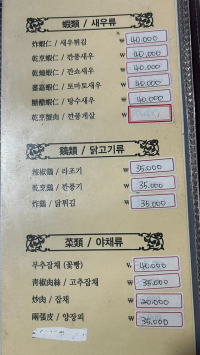 蝦類 / 새우류
炸蝦仁 / 새우튀김 ₩ 40,000
乾烹蝦仁 / 깐풍새우 ₩ 40,000
乾燒蝦仁 / 깐쇼새우 ₩ 40,000
蕃茄蝦仁 / 토마토새우 ₩ 40,000
糖醋蝦仁 / 탕수새우 ₩ 40,000
乾烹蟹肉 / 깐풍게살 ₩
鷄類 / 닭고기류
辣椒鷄 / 라조기 ₩ 35,000
乾烹鷄 / 깐풍기 ₩ 35,000
炸鷄 / 닭튀김 ₩ 35,000
菜類 / 야채류
부추잡채 (꽃빵) ₩ 40,000
靑椒肉絲 / 고추잡채 ₩ 35,000
炒肉 / 잡채 ₩ 20,000
兩張皮 / 양장피 ₩ 35,000